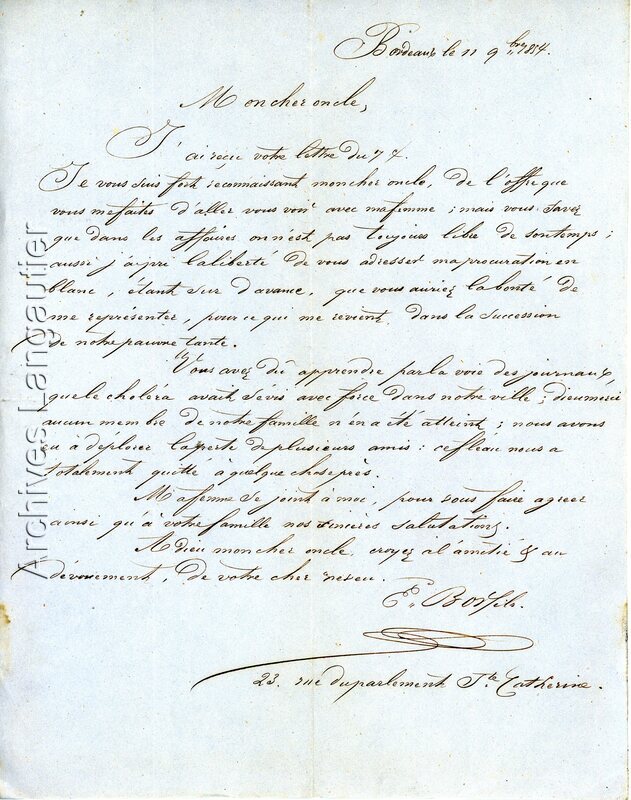 Bordeaux le 11 9bre 1854.
Mon cher oncle,
J'ai recu votre lettre du 7 &.
Je vous suis fort reconnaissant mon cher oncle, de l'offre que
vous me faites d'aller vous voir avec ma femme ; mais vous savez
que dans les affaires on n'est pas toujours libre de son temps ;
aussi j'ai pri la liberté de vous adresser ma procuration en
blanc, étant sur d'avance, que vous auriez la bonté de
me représenter, pour ce qui me revient, dans la succession
de notre pauvre tante.
Vous avez dû apprendre par la voie des journaux,
que le choléra avait sévis avec force dans notre ville ; dieu merci
aucun membre de notre famille n'en a été atteint ; nous avons
eu à déplorer la perte de plusieurs amis : ce fléau nous a
totalement quitté a quelque chose près.
Ma femme se joint à moi, pour vous faire agréer
ainsi qu'à votre famille nos sincères salutations.
Adieu mon cher oncle, croyez a l'amitié & au
dévouement, de votre cher neveu.
23. rue du parlement Ste Catherine.
Archives Langautier